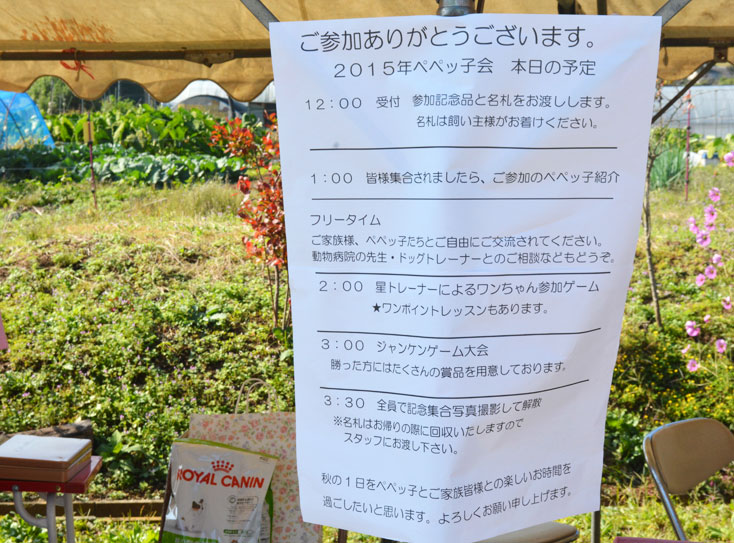 ご参加ありがとうございます。
2015年ペペッ子会 本日の予定
12:00 受付 参加記念品と名札をお渡しします。
名札は飼い主様がお着けください。
1:00 皆様集合されましたら、ご参加のペペッ子紹介
フリータイム
ご家族様、ペペッ子たちとご自由にご交流されてください。
動物病院の先生・ドッグトレーナーとのご相談などもどうぞ。
2:00 星トレーナーによるワンちゃん参加ゲーム
★ワンポイントレッスンもあります。
3:00 ジャンケンゲーム大会
勝った方にはたくさんの賞品を用意しております。
3:30 全員で記念集合写真撮影して解散
※名札はお帰りの際に回収いたしますので
スタッフにお渡し下さい。
秋の1日をペペッ子とご家族皆様との楽しいお時間を
過ごしたいと思います。よろしくお願い申し上げます。
ROYAL CANIN